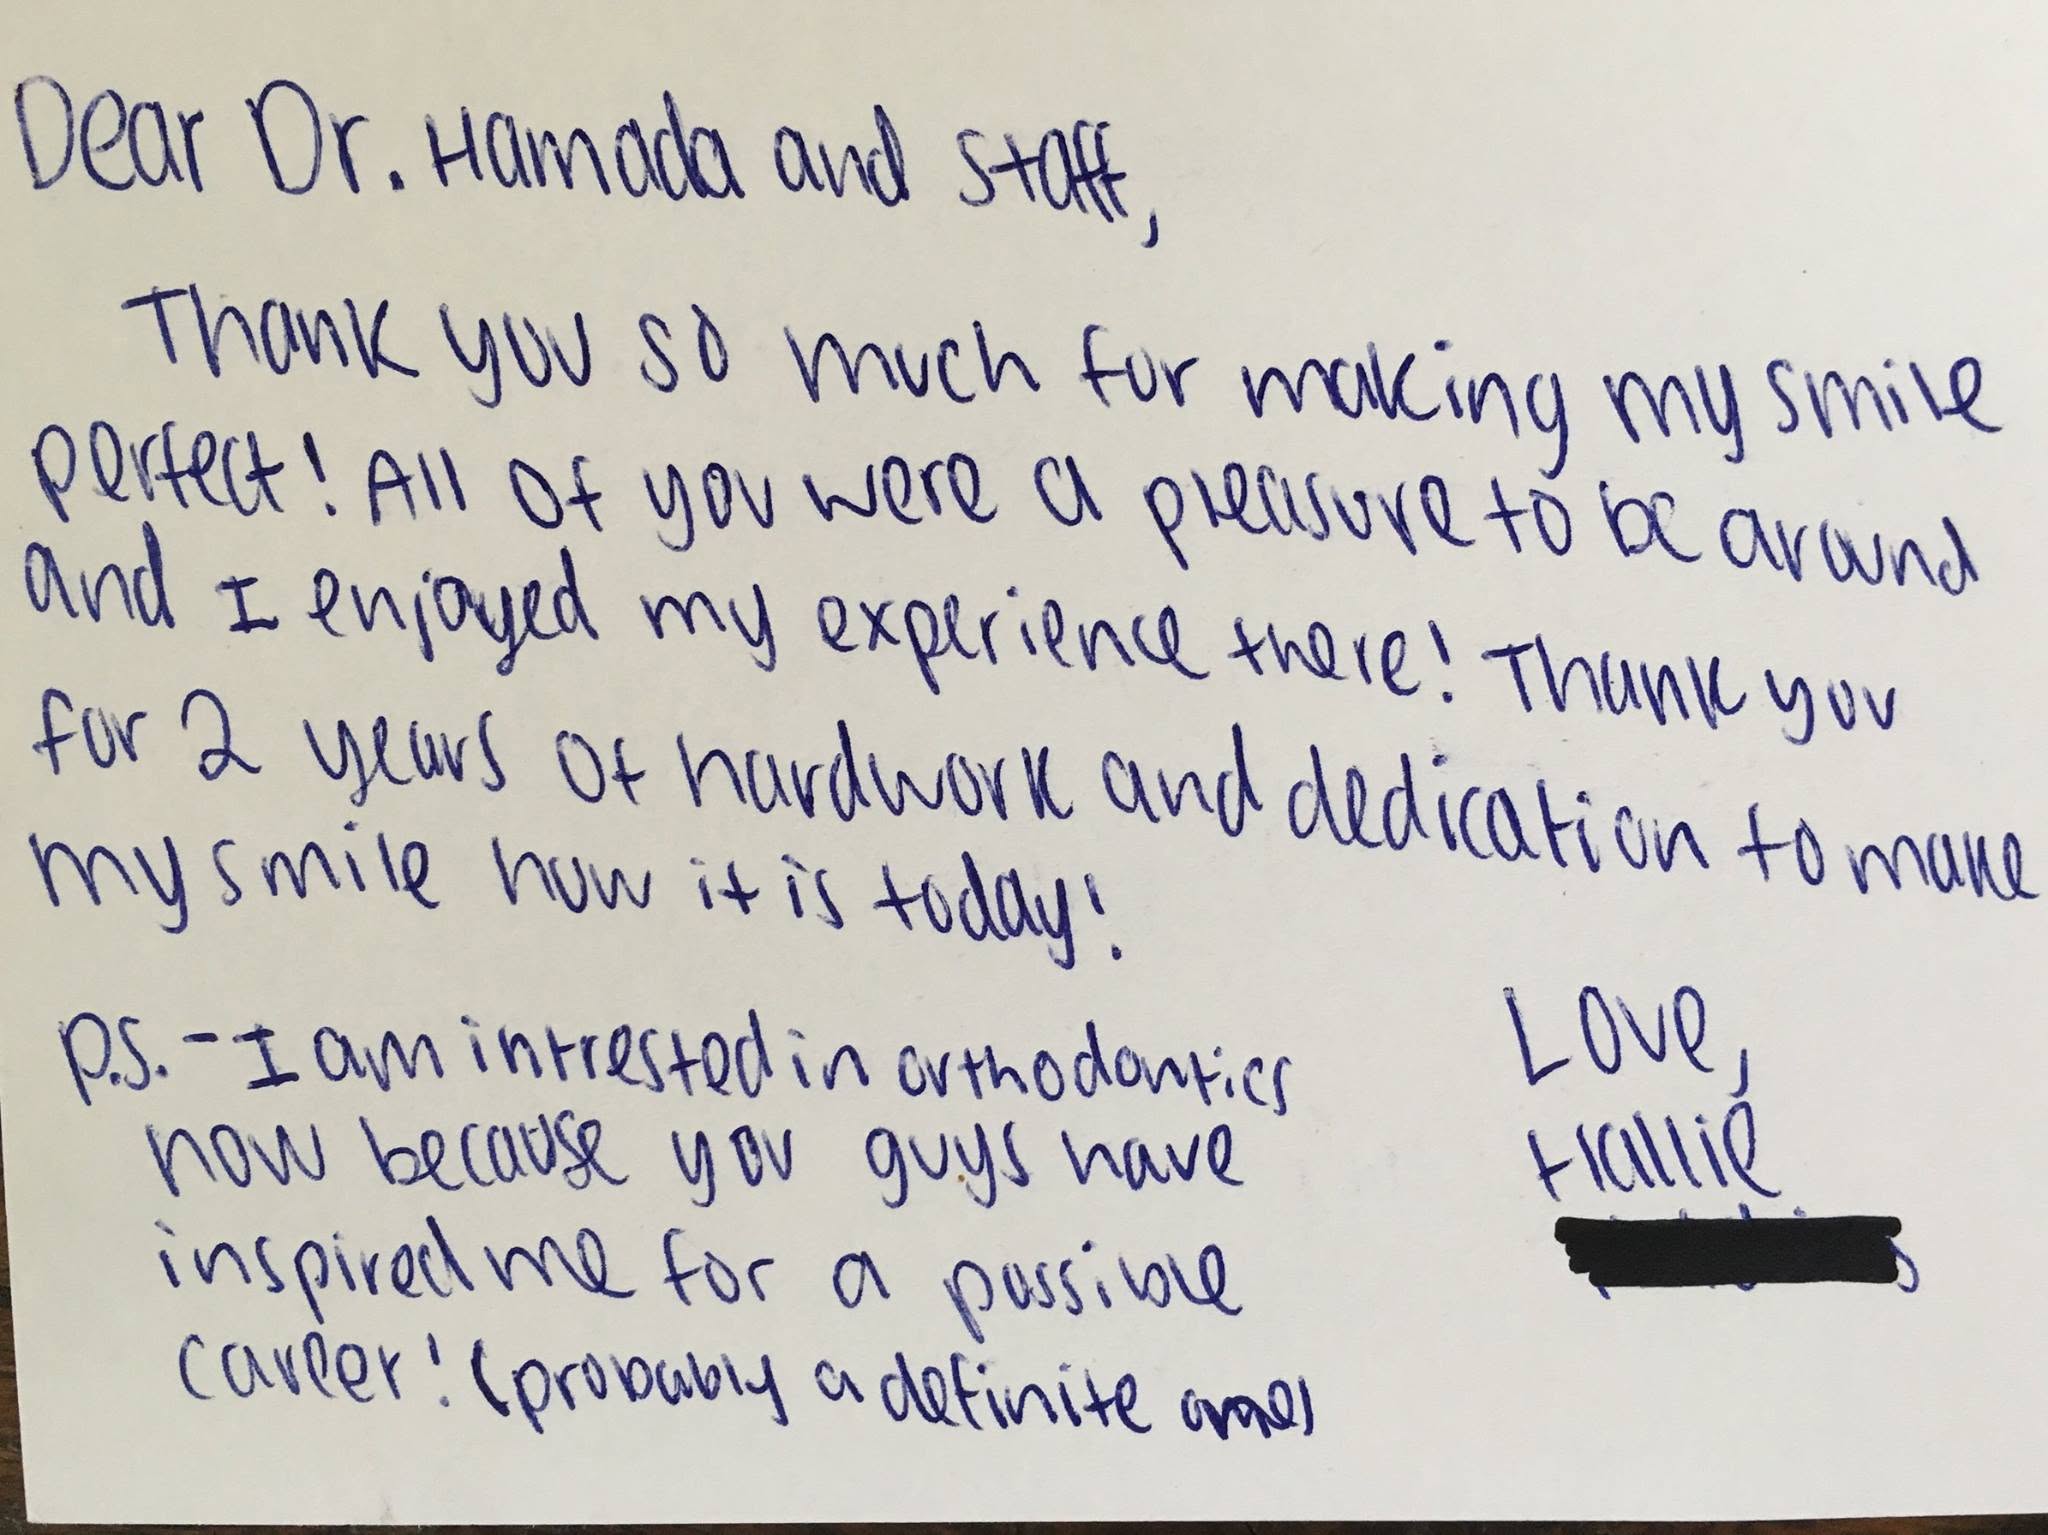 Dear Dr. Hamada and staff,
Thank you so much for making my smile
perfect! All of you were a pleasure to be around
and I enjoyed my experience there! Thank you
for 2 years of hardwork and dedication to make
my smile how it is today!
P.S. - I am intrested in orthodontics
now because you guys have
inspired me for a possible
career! (probably a definite one)
Love,
Hallie